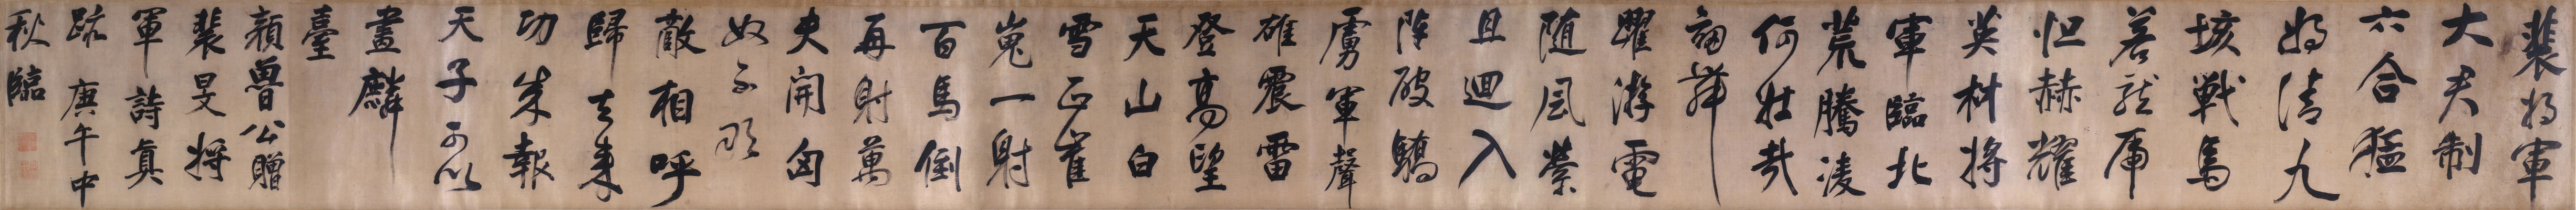 裴将軍
大君制
六合猛
将清九
垓戦馬
若龍虎
怛赫耀
英材将
軍臨北
荒騰凌
何壮哉
舞
躍游電
随風縈
且迴入
陣破驕
虜軍聲
雄震雷
登高望
天山白
雪正崔
嵬一射
百馬倒
再射萬
夫開匈
奴不敢
敵相呼
歸去来
功成報
天子可以
畫麟
臺
顔魯公贈
裴旻将
軍詩真
跡 庚午中
秋臨